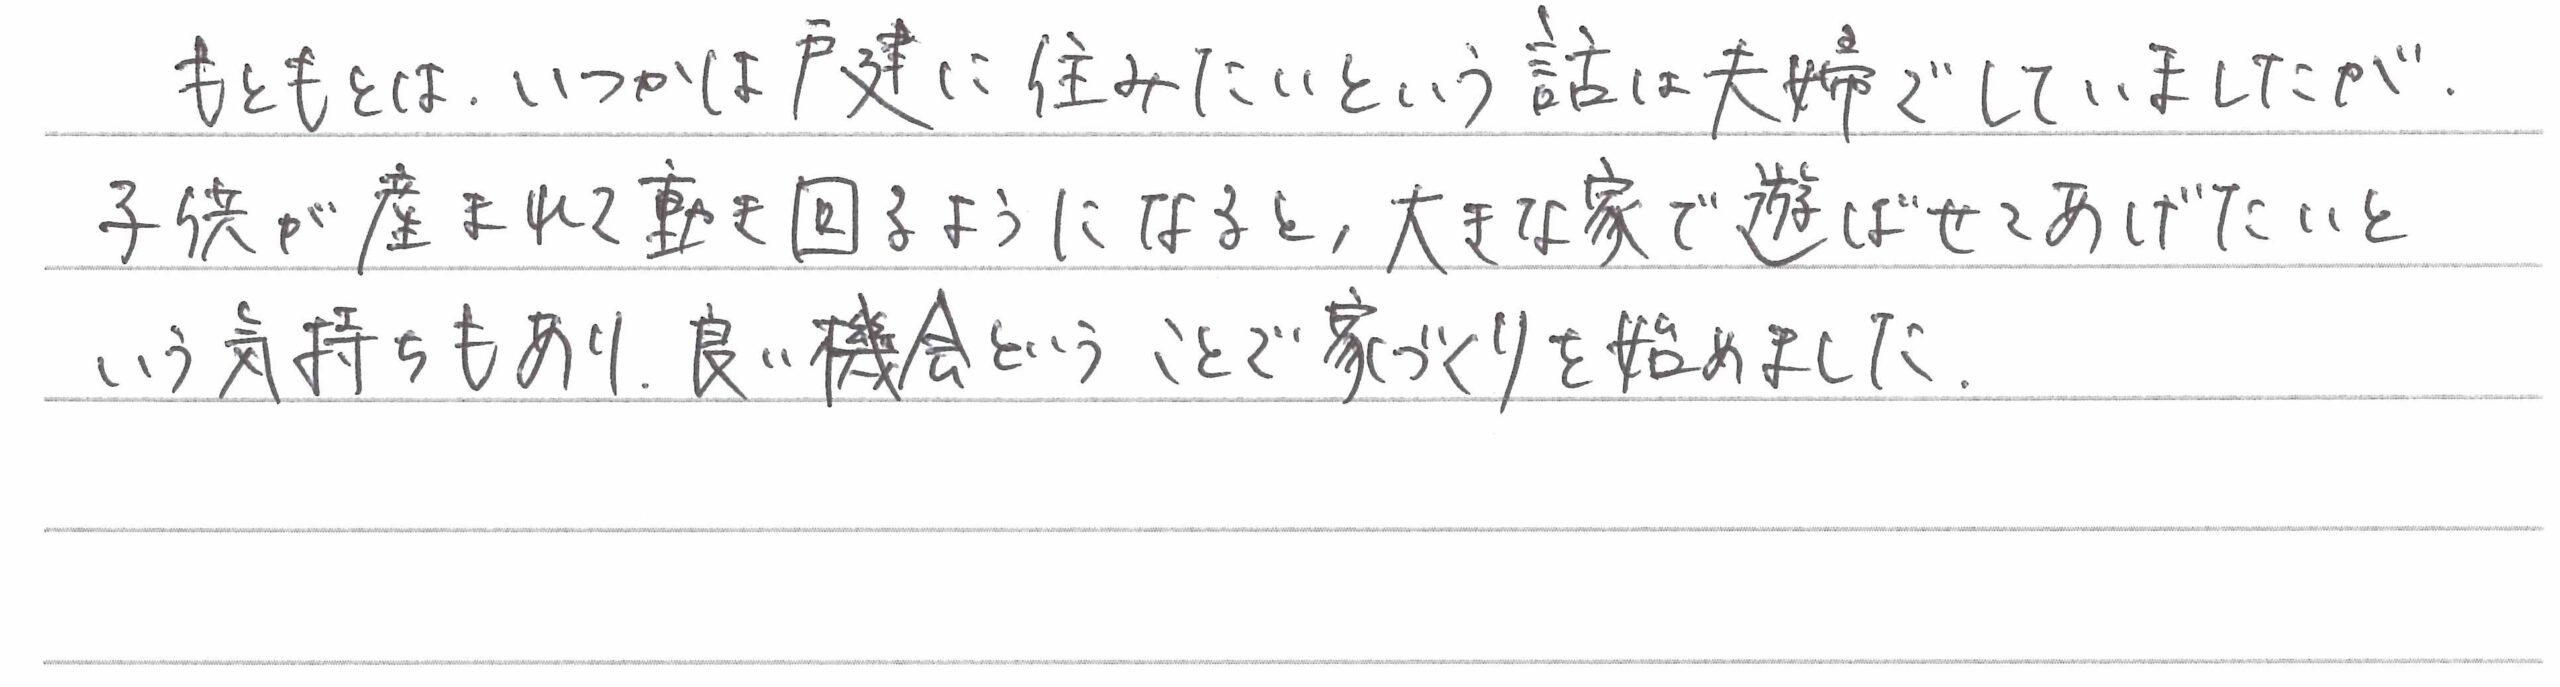 もともとは、いつかは戸建に住みたいという話は夫婦でしていましたが、
子供が産まれて動き回るようになると、大きな家で遊ばせてあげたいと
いう気持ちもあり、良い機会ということで家づくりを始めました。